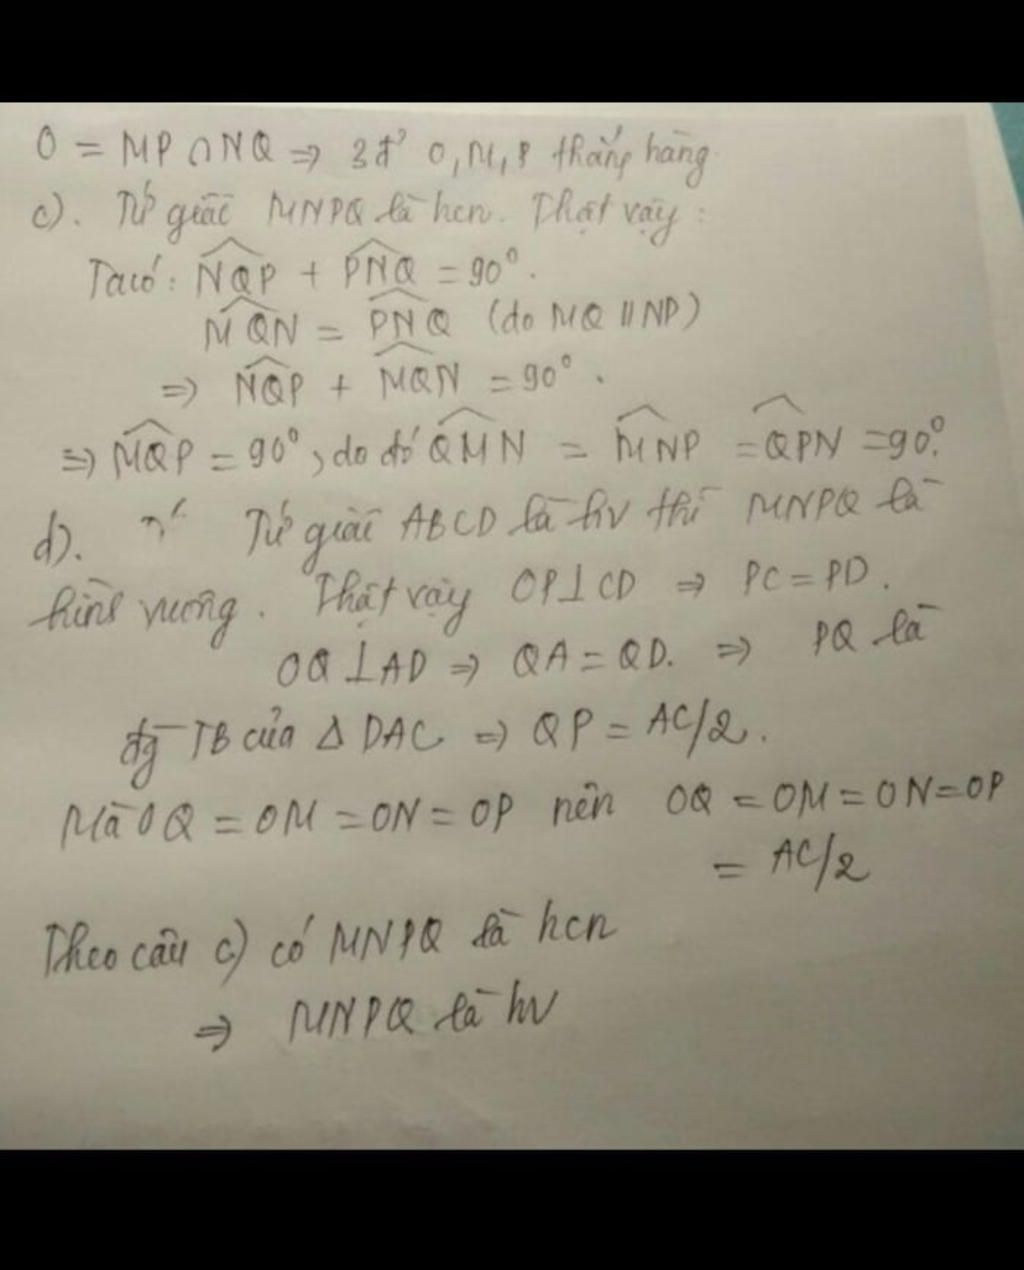 O = MP ∩ NQ ⇒ 3 đ' O, M, P thẳng hàng.
c). Tứ giác MNPQ là hcn. Thật vậy :
Ta có : NQP + PNQ = 90°.
MQN = PNQ (do MQ // NP)
⇒ NQP + MQN = 90°.
⇒ MQP = 90°, do đó QMN = MNP = QPN = 90°.
d). Tứ giác ABCD là hv thì MNPQ là
hình vuông. Thật vậy OP⊥CD ⇒ PC = PD.
OQ ⊥ AD ⇒ QA = QD. ⇒ PQ là
đg TB của Δ DAC ⇒ QP = AC/2.
Mà OQ = OM = ON = OP nên OQ = OM = ON = OP
= AC/2
Theo câu c) có MNPQ là hcn
⇒ MNPQ là hv